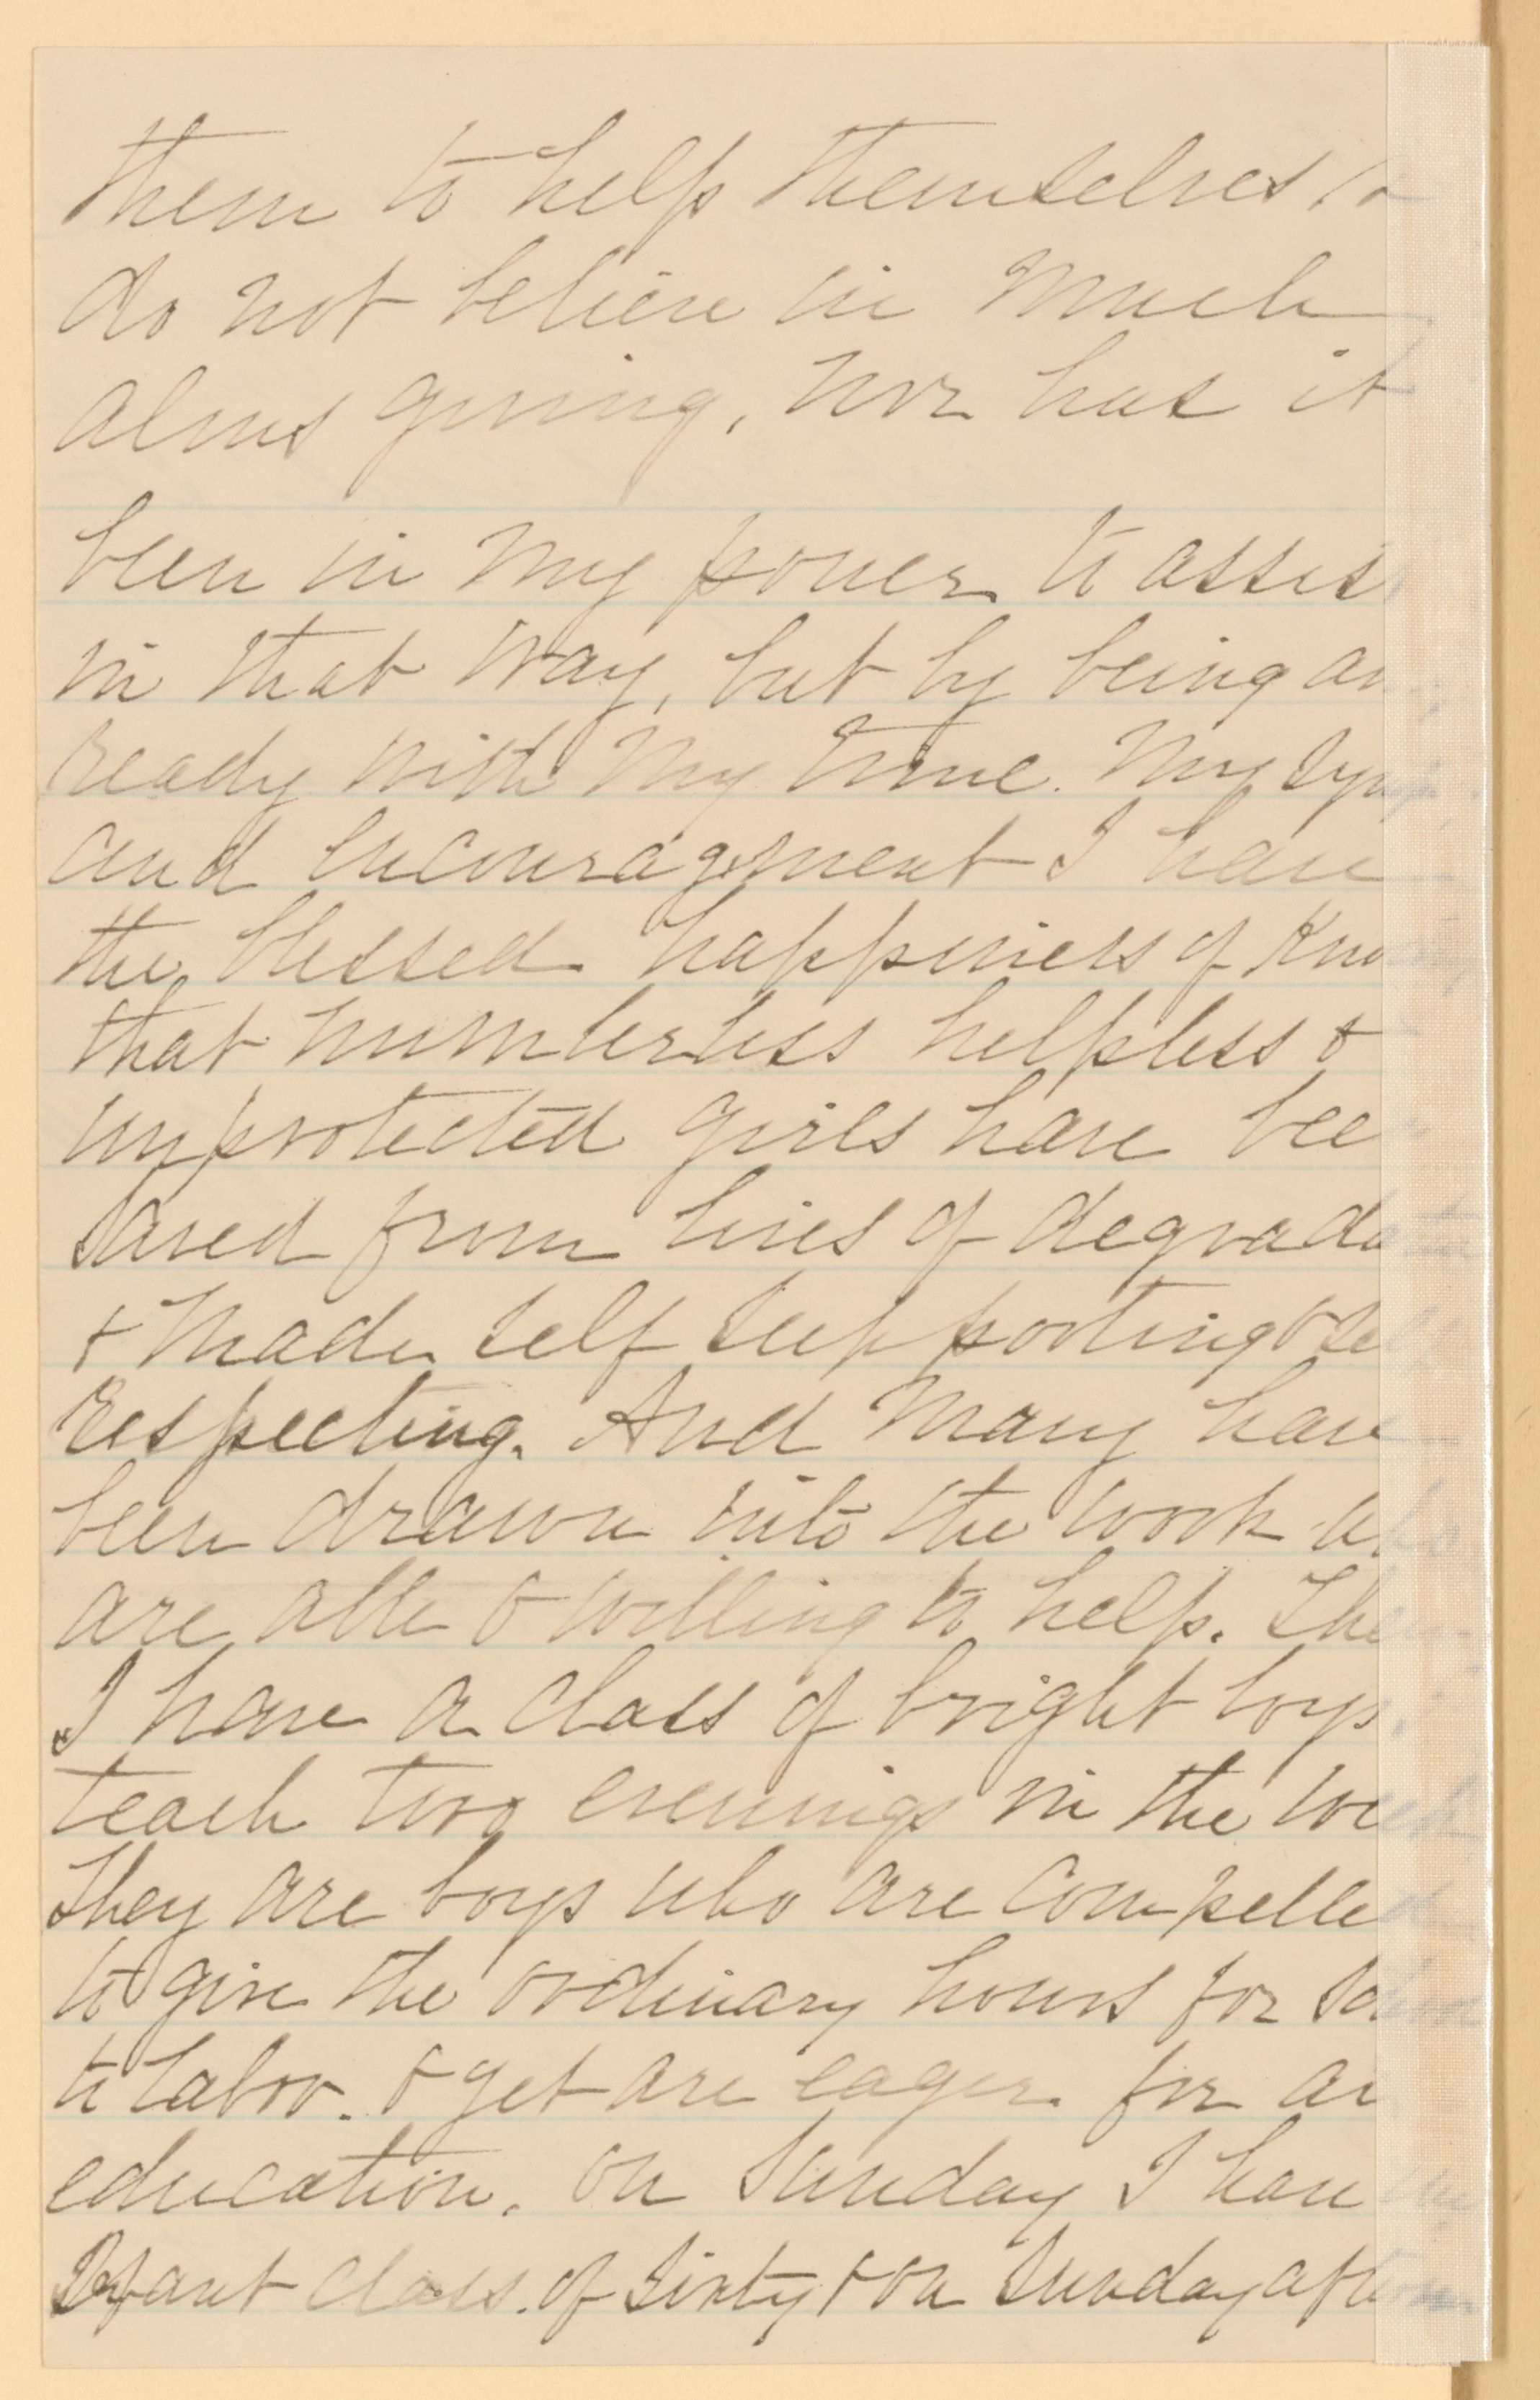 them to help themselves. 
do not believe in much
alms giving, nor has it
been in my power to assist
in that way, but by being
ready with my time. My symp
and encouragement I have
the blessed happiness of know
that numberless helpless &
unprotected girls have been
saved from lives of degrada
& made self supporting & se
respecting. And many have
been drawn into the work
are able & willing to help. The
I have a class of bright boys.
teach two evenings in the week
They are boys who are compelled
to give the ordinary hours for school
to labor. & yet are eager for an
education. On Sunday I have
Infant class. of sixty & on Sunday aftern